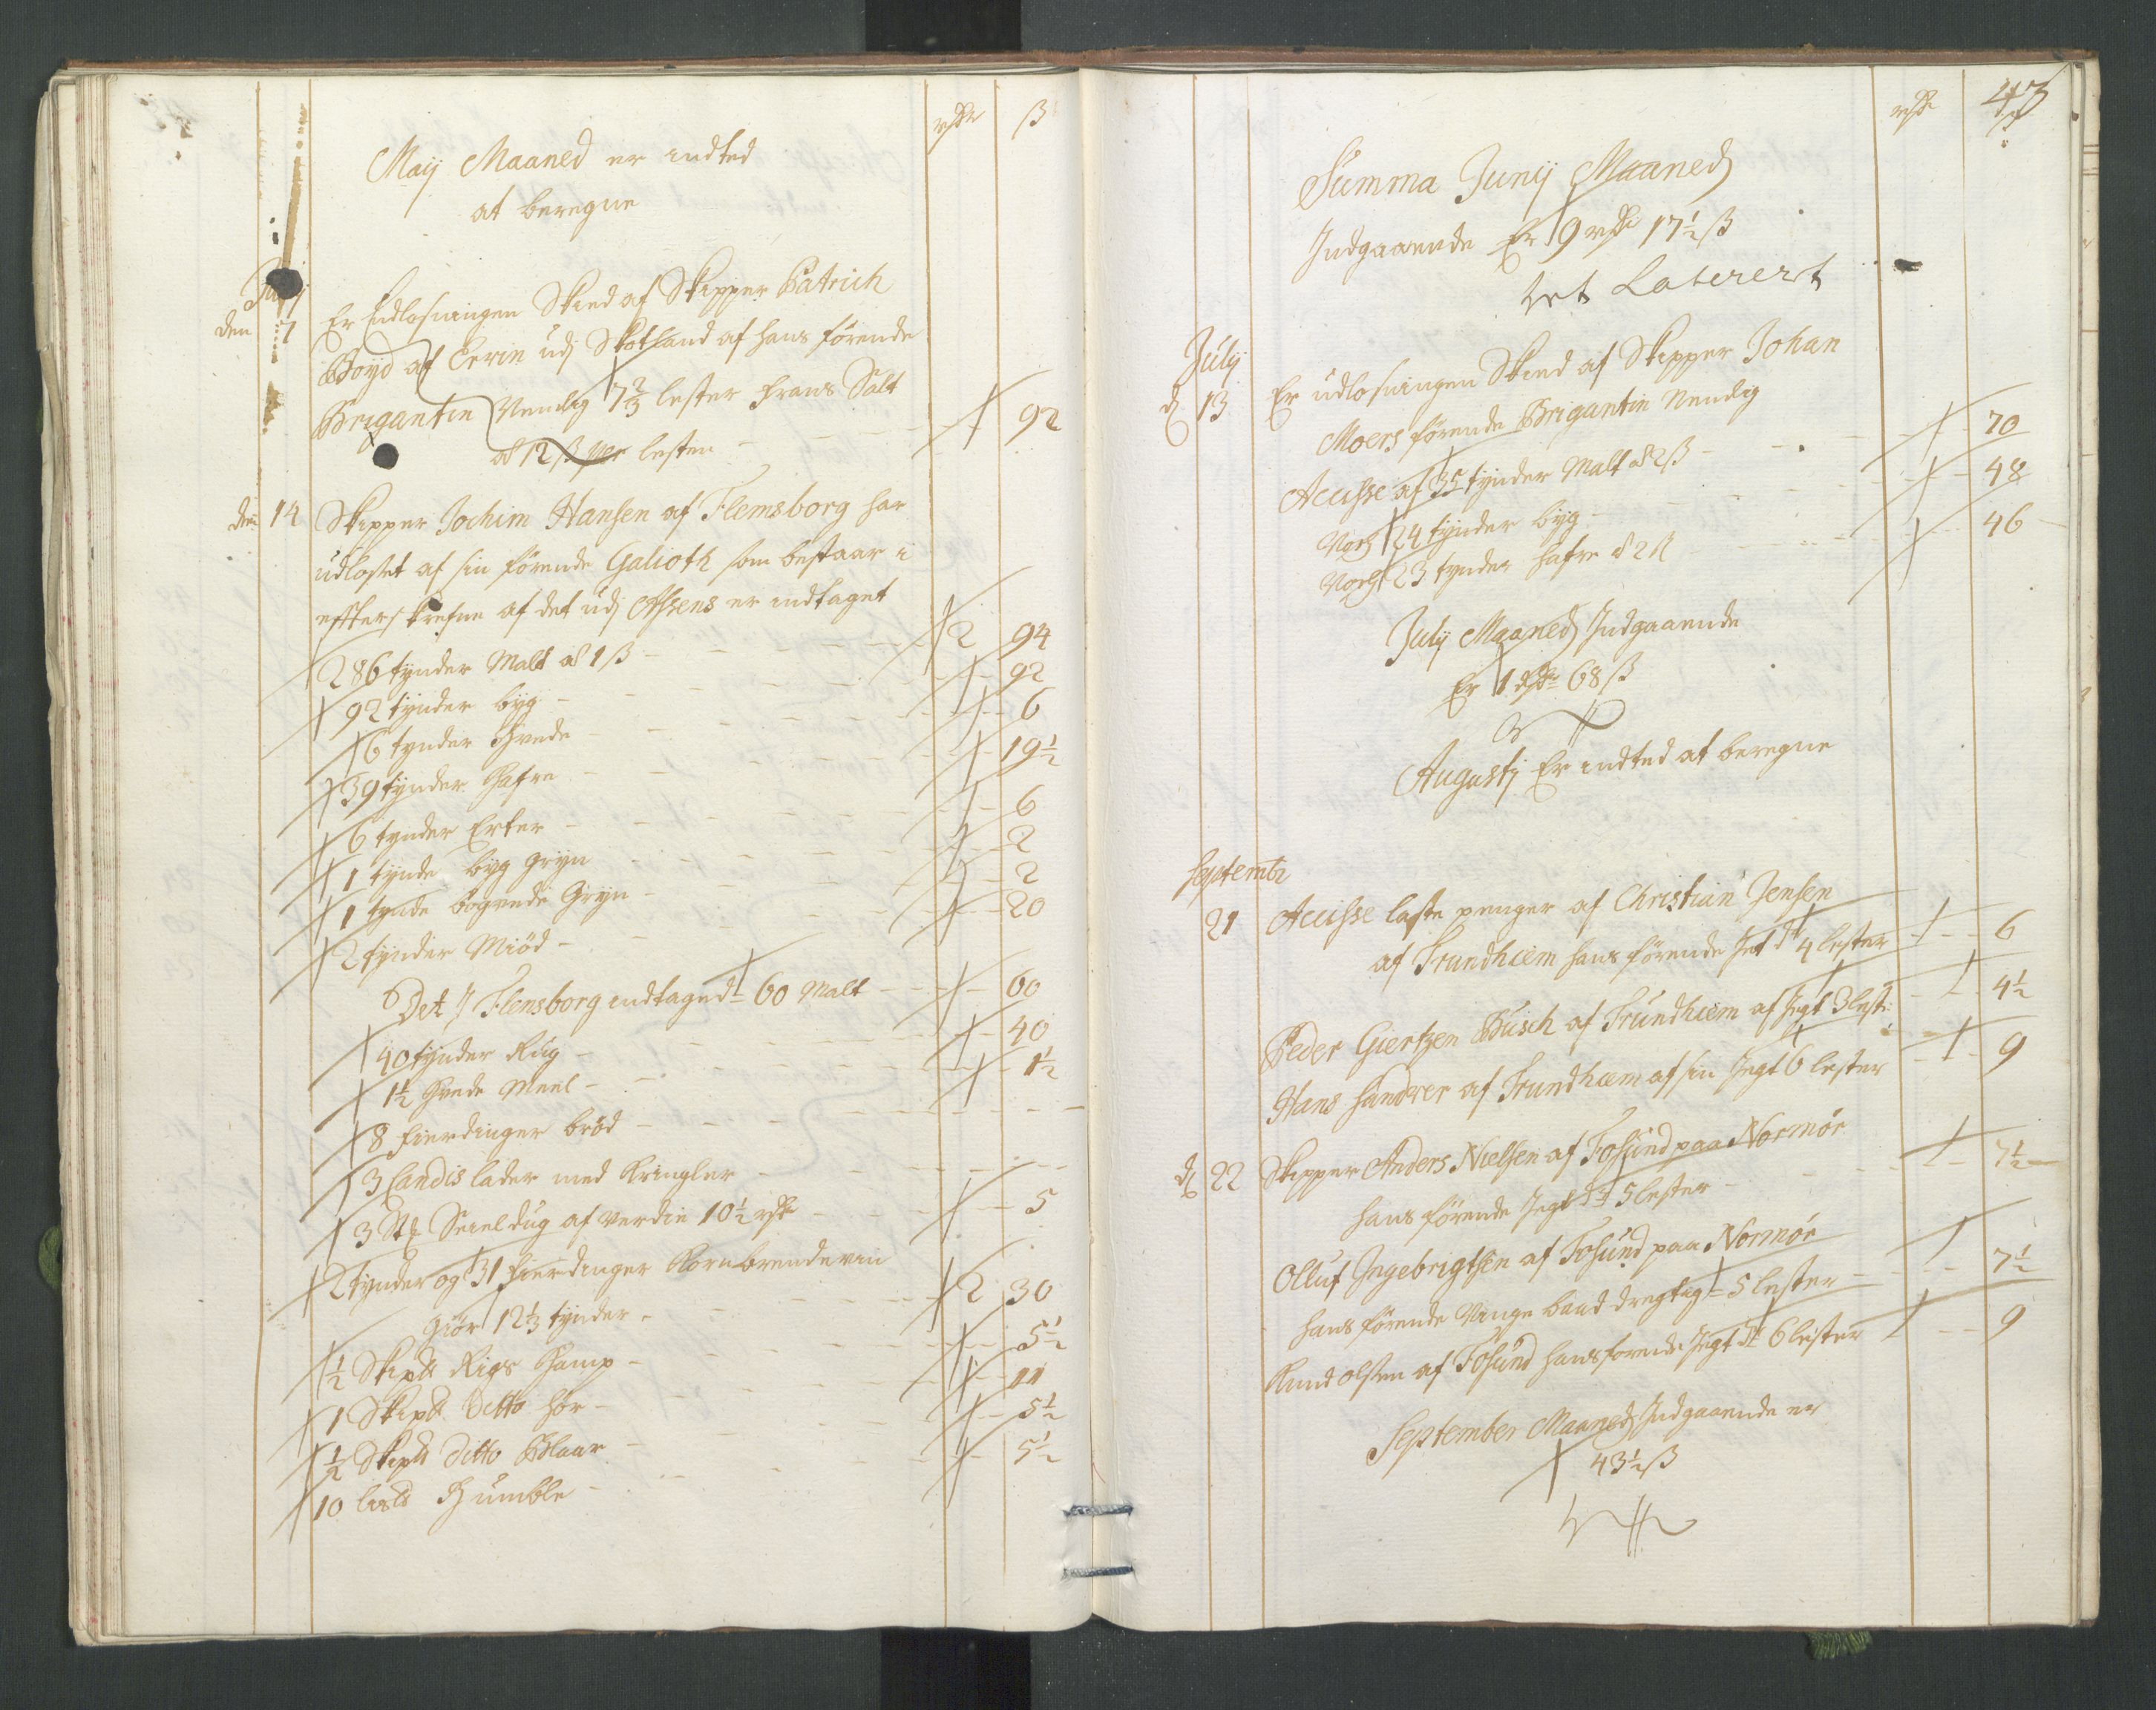 rdr ß
Maij Maaned er indted
at beregne
Junij
den 7 Er Indlosningen Skeed af Skipper Patrich
Boyd af Eerin udj Skotland af hans førende
Brigantin Nemlig 7 2/3 lester frans Salt
a 12 ß per lesten - - - 92
den 14 Skipper Jochim Hansen af Flemsborg har
udlosset af sin førende Galioth som bestaar i
effterskrefne af det udj Assens er indtaget
286 tynder Malt a 1 ß - - - 2 94
92 tynder byg - - - 92
6 tynder Hvede - - - 6
39 tynder Hafre - - - 19 1/2
6 tynder Erter - - - 6
1 tynde byg gryn - - - 2
1 tynde bogvede Gryn - - - 2
2 tynder Miød - - - 20
Det J Flensborg indtaged 60 Malt - - - 60
40 tynder Rug - - - 40
1 1/2 hvede Meel - - - 1 1/2
8 fierdinger brød - - -
3 Candis lader med Kringler - - -
3 Stk Seieldug af verdie 10 1/2 rdr - - - 5
2 tynder og 31 fierdinger Korn brendevin
giør 12 1/3 tynder - - - 2 30
1/2 Skipd Rigs Hamp - - - 5 1/2
1 Skipd Ditto hør - - - 11
1/2 Skipd Ditto Blaar - - - 5 1/2
10 lispd Humble - - - 5 1/2
rdr 43
ß
Summa Junij Maaned
Indgaaende Er 9 rdr 17 1/2 ß
Let Laterert
Julij
d 13 Er udlosningen Skeed af Skipper Johan
Moers førende Brigantin Nemlig
Acciisse af 35 tynder Malt a 2 ß - - - 70
24 tynder byg - - - 48
23 tynder hafre a 2 ß - - - 46
Julij Maaned Indgaaende
Er 1 rdr 68 ß
Augustj Er indted at beregne
Septembr
21 Acciisse laste penger af Christian Jensen
af Trundhiem hans førende Jet dr 4 lester - - - 6
Peder Giertzen Busch af Trundhiem af Jegt 3 lest: - - - 4 1/2
Hans Sandver af Trundhiem af sin Jegt 6 lester - - - 9
d 22 Skipper Anders Nielsen af Fosund paa Normør
hans førende Jegt dr 5 lester - - - 7 1/2
Olluf Jngebrigtsen af Fosund paa Normør
hans førende Vange baad dregtig 5 lester - - - 7 1/2
Knud olsen af Fosund hans førende Jegt dr 6 lester - - 9
September Maaned Indgaaende er
43 1/2 ß